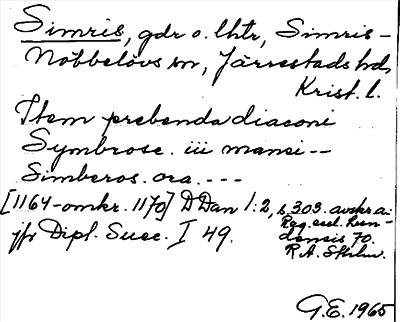 Simris, gdr o. lhtr, Simris-
Nöbbelövs sn, Järrestads hd,
Krist. l.
Item prebenda diaconi
Symbrose. iii mansi--
Simberos. ora. ---
[1164-omkr. 1170] D Dan 1:2, s. 303. avskr. a.
Reg. eccl. Lun-
densis 70.
R.A. Sthlm.
jfr Dipl. Suec. I 49.
G.E. 1965